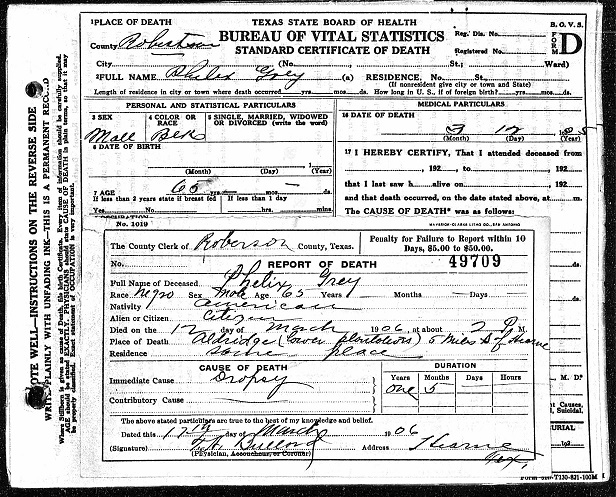 1 PLACE OF DEATH
TEXAS STATE BOARD OF HEALTH
B. O. V. S.
BUREAU OF VITAL STATISTICS
Reg. Dis. No.
FORM D
County Robertson
STANDARD CERTIFICATE OF DEATH
Registered No.
City (No. St.; Ward)
2 FULL NAME Grey (a) RESIDENCE, No. St.
(If nonresident give city or town and State)
Length of residence in city or town where death occurred yrs. mos. ds. How long in U. S., if of foreign birth? yrs. mos. ds.
PERSONAL AND STATISTICAL PARTICULARS
MEDICAL PARTICULARS
3 SEX
4 COLOR OR RACE
5 SINGLE, MARRIED, WIDOWED OR DIVORCED (write the word)
16 DATE OF DEATH
Male Blk
3 12
(Month) (Day) (Year)
6 DATE OF BIRTH
(Month) (Day) (Year)
17 I HEREBY CERTIFY, That I attended deceased from
, 192 , to , 192
7 AGE 65 yrs. mos. ds.
that I last saw h alive on , 192
If less than 2 years state if breast fed
If less than 1 day
and that death occurred, on the date stated above, at m.
Yes No
hrs. mins.
The CAUSE OF DEATH* was as follows:
No. 1019
MAVERICK-CLARKE LITHO CO., SAN ANTONIO
The County Clerk of Roberson County, Texas.
Penalty for Failure to Report within 10 Days, $5.00 to $50.00.
No. REPORT OF DEATH 49709
Full Name of Deceased Phelix Grey
Race Negro Sex Male Age 65 Years — Months — Days
Nativity American
Alien or Citizen Citizen
Died on the 12 day of March 1906, at about 2 P M.
Place of Death Aldridge (lower plantation) 5 Miles S of Hearne
Residence same place
CAUSE OF DEATH
DURATION
Immediate Cause Dropsy
Years Months Days Hours
One 5
Contributory Cause
The above stated particulars are true to the best of my knowledge and belief.
Dated this 17th day of March 1906
(Signature) Address Hearne
(Physician, Accoucheur, or Coroner) Tex.
M. D.
URIAL
, 192
NOTE WELL—INSTRUCTIONS ON THE REVERSE SIDE
WRITE PLAINLY WITH UNFADING INK—THIS IS A PERMANENT RECORD